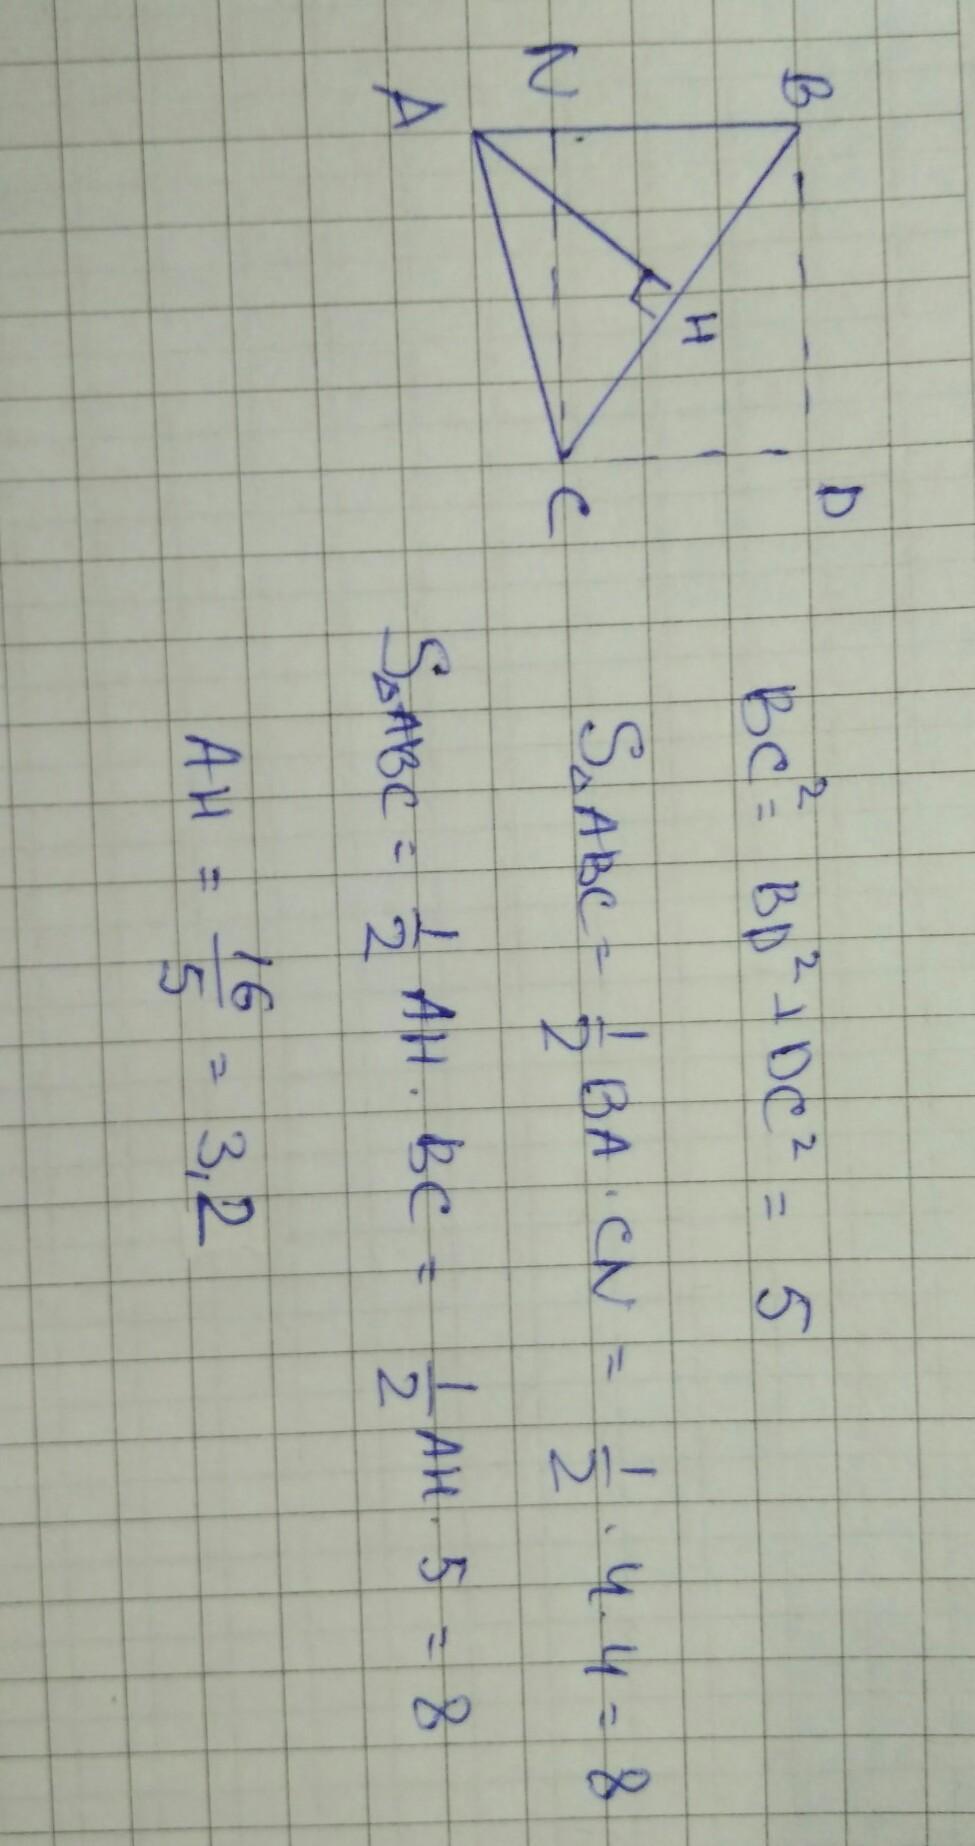 B
D
N
H
A
C
BC² = BD² + DC² = 5
S△ABC = 1/2 BA · CN = 1/2 · 4 · 4 = 8
S△ABC = 1/2 AH · BC = 1/2 AH · 5 = 8
AH = 16/5 = 3,2